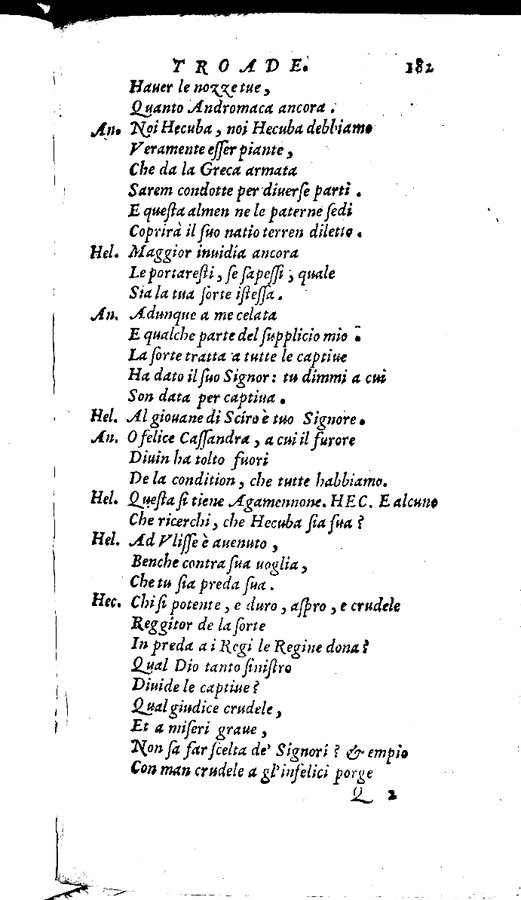 TROADE. 182
Hauer le nozze tue,
Quanto Andromaca ancora.
An. Noi Hecuba, noi Hecuba debbiamo
Veramente eſſer piante,
Che da la Greca armata
Sarem condotte per diuerſe parti.
E queſta almen ne le paterne ſedi
Coprirà il ſuo natio terren diletto.
Hel. Maggior inuidia ancora
Le portareſti, ſe ſapeſſi, quale
Sia la tua ſorte iſteſſa.
An. Adunque a me celata
E qualche parte del ſupplicio mio?
La ſorte tratta a tutte le captiue
Ha dato il ſuo Signor: tu dimmi a cui
Son data per captiua.
Hel. Al giouane di Sciro è tuo Signore.
An. O felice Caſſandra, a cui il furore
Diuin ha tolto fuori
De la condition, che tutte habbiamo.
Hel. Queſta ſi tiene Agamennone. HEC. E alcuno
Che ricerchi, che Hecuba ſia ſua?
Hel. Ad Vliſſe è auenuto,
Benche contra ſua uoglia,
Che tu ſia preda ſua.
Hec. Chi ſi potente, e duro, aſpro, e crudele
Reggitor de la ſorte
In preda a i Regi le Regine dona?
Qual Dio tanto ſiniſtro
Diuide le captiue?
Qual giudice crudele,
Et a miſeri graue,
Non ſa far ſcelta de' Signori? & empio
Con man crudele a gl'infelici porge
Q 2